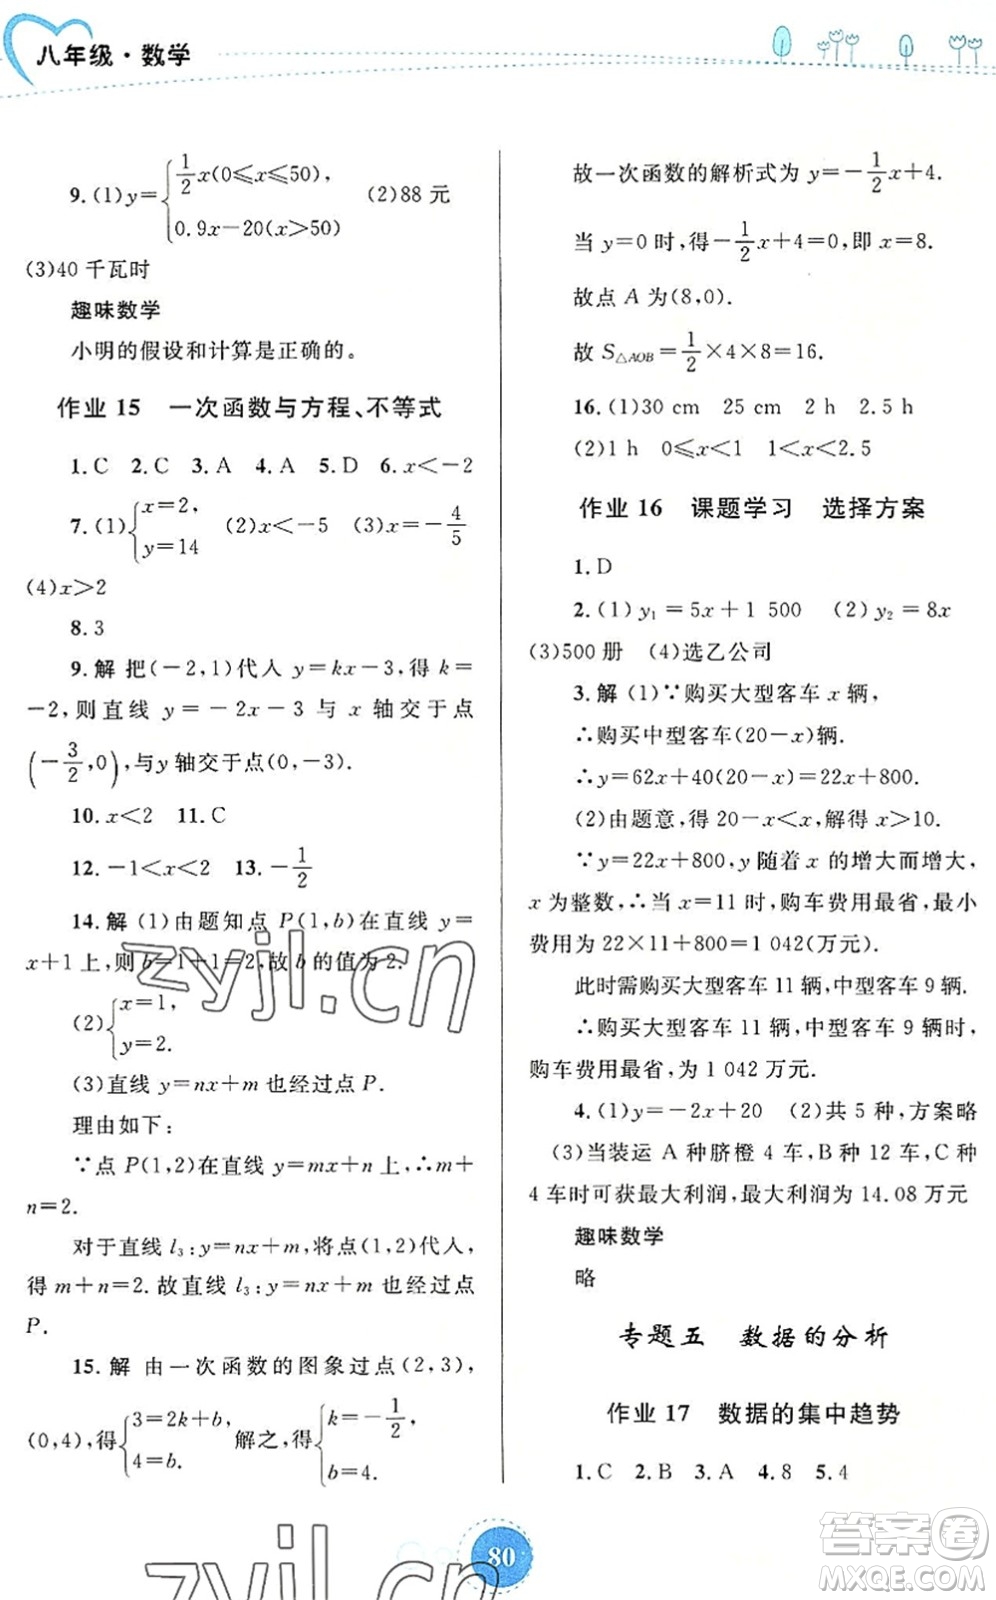 八年级·数学
9.(1)y={1/2x(0≤x≤50), 0.9x-20(x>50) (2)88 元
(3)40 千瓦时
趣味数学
小明的假设和计算是正确的。
作业 15 一次函数与方程、不等式
1.C 2.C 3.A 4.A 5.D 6.x<-2
7.(1){x=2, y=14 (2)x<-5 (3)x=-4/5
(4)x>2
8.3
9.解 把(-2,1)代人 y=kx-3,得 k=
-2,则直线 y=-2x-3 与 x 轴交于点
(-3/2,0),与y 轴交于点(0,-3).
10.x<2 11.C
12.-1<x<2 13.-1/2
14.解 (1)由题知点 P(1,b)在直线 y=
x+1 上,则 b=1+1=2,故 b 的值为 2.
(2){x=1, y=2.
(3)直线 y=nx+m 也经过点 P.
理由如下:
∵点 P(1,2)在直线 y=mx+n 上,∴m+
n=2.
对于直线 l₃:y=nx+m,将点(1,2)代人,
得 m+n=2.故直线 l₃:y=nx+m 也经过点
P.
15.解 由一次函数的图象过点(2,3),
(0,4),得{3=2k+b, 4=b. 解之,得{k=-1/2, b=4.
故一次函数的解析式为 y=-1/2x+4.
当 y=0 时,得-1/2x+4=0,即 x=8.
故点 A 为(8,0).
故 S△AOB=1/2×4×8=16.
16.(1)30 cm 25 cm 2 h 2.5 h
(2)1 h 0≤x<1 1<x<2.5
作业 16 课题学习 选择方案
1.D
2.(1)y₁=5x+1 500 (2)y₂=8x
(3)500 册 (4)选乙公司
3.解 (1)∵购买大型客车 x 辆,
∴购买中型客车(20-x)辆.
∴y=62x+40(20-x)=22x+800.
(2)由题意,得 20-x<x,解得 x>10.
∵y=22x+800,y 随着 x 的增大而增大,
x 为整数,∴当 x=11 时,购车费用最省,最小
费用为 22×11+800=1 042(万元).
此时需购买大型客车 11 辆,中型客车 9 辆.
∴购买大型客车 11 辆,中型客车 9 辆时,
购车费用最省,为 1 042 万元.
4.(1)y=-2x+20 (2)共 5 种,方案略
(3)当装运 A 种脐橙 4 车,B 种 12 车,C 种
4 车时可获最大利润,最大利润为 14.08 万元
趣味数学
略
专题五 数据的分析
作业 17 数据的集中趋势
1.C 2.B 3.A 4.8 5.4
80
zyjl.cn
zyjl.cn
答案卷
MXQE.COM